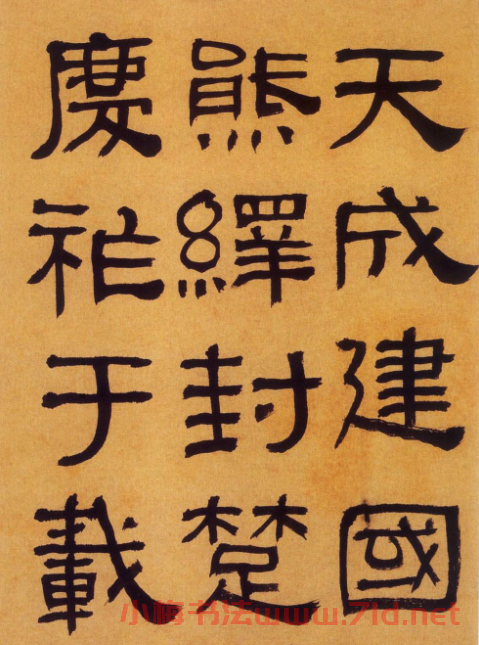 天成建國
熊繹封楚
慶祚于載
小梅书法www.7ld.net